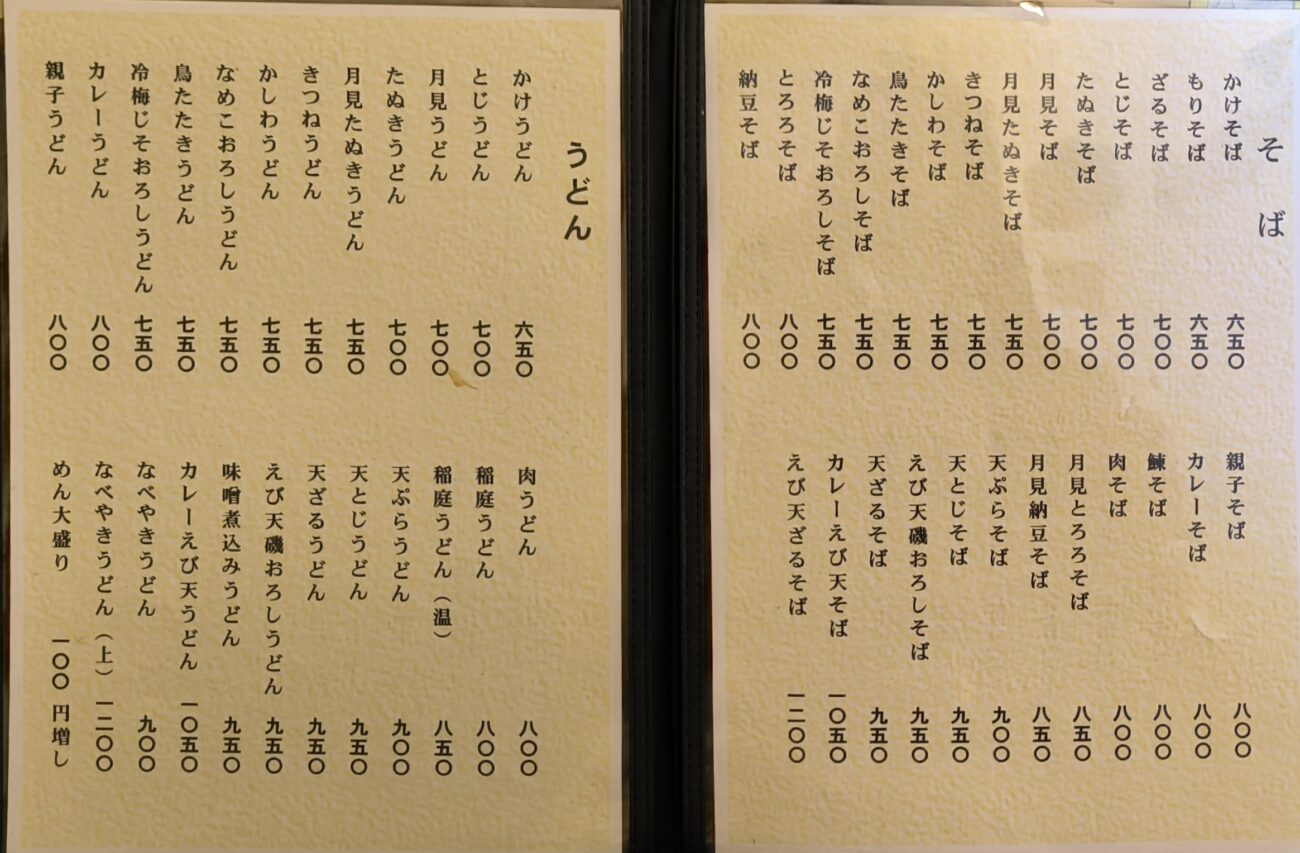 そば
かけそば 六五〇
もりそば 六五〇
ざるそば 七〇〇
とじそば 七〇〇
たぬきそば 七〇〇
月見そば 七〇〇
月見たぬきそば 七五〇
きつねそば 七五〇
かしわそば 七五〇
鳥たたきそば 七五〇
なめこおろしそば 七五〇
冷梅じそおろしそば 七五〇
とろろそば 八〇〇
納豆そば 八〇〇
親子そば 八〇〇
カレーそば 八〇〇
鰊そば 八〇〇
肉そば 八〇〇
月見とろろそば 八五〇
月見納豆そば 八五〇
天ぷらそば 九〇〇
天とじそば 九五〇
えび天磯おろしそば 九五〇
天ざるそば 九五〇
カレーえび天そば 一〇五〇
えび天ざるそば 一二〇〇
うどん
かけうどん 六五〇
とじうどん 七〇〇
月見うどん 七〇〇
たぬきうどん 七〇〇
月見たぬきうどん 七五〇
きつねうどん 七五〇
かしわうどん 七五〇
なめこおろしうどん 七五〇
鳥たたきうどん 七五〇
冷梅じそおろしうどん 七五〇
カレーうどん 八〇〇
親子うどん 八〇〇
肉うどん 八〇〇
稲庭うどん 八〇〇
稲庭うどん（温） 八五〇
天ぷらうどん 九〇〇
天とじうどん 九五〇
天ざるうどん 九五〇
えび天磯おろしうどん 九五〇
味噌煮込みうどん 九五〇
カレーえび天うどん 一〇五〇
なべやきうどん 九〇〇
なべやきうどん（上） 一二〇〇
めん大盛り 一〇〇円増し